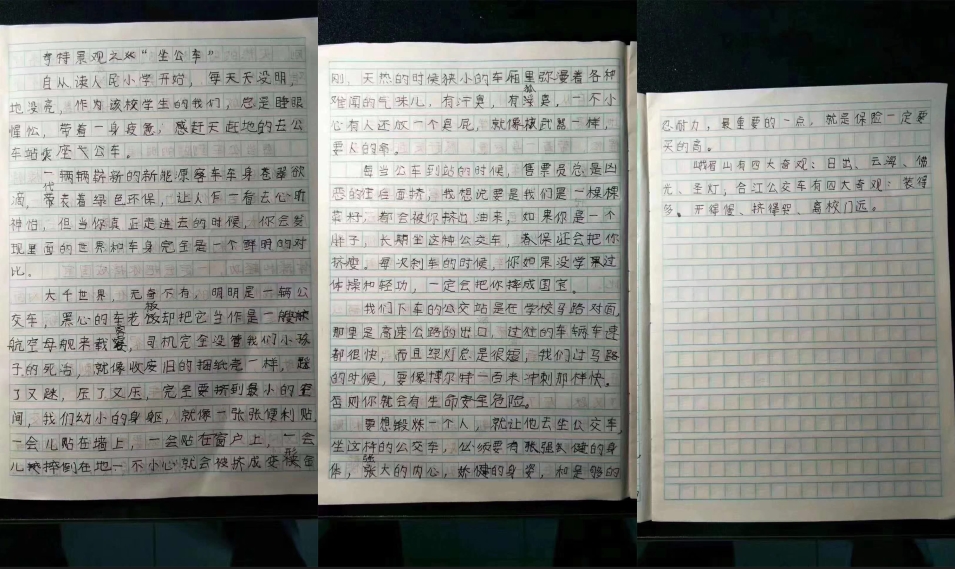 奇特景观之"坐公车"
自从读人民小学开始，每天天没明，
地没亮，作为该校学生的我们，总是睡眼
惺忪，带着一身疲惫，感赶天赶地的去公
车站乘座公车。
一辆辆崭新的新能源客车车身翠翠欲
滴，代表着绿色环保，让人乍一看去心旷
神怡，但当你真正走进去的时候，你会发
现里面的世界和车身完全是一个鲜明的对
比。
大千世界，无奇不有，明明是一辆公
交车，黑心的车老板却把它当作是一艘
航空母舰来载客，司机完全没管我们小孩
子的死活，就像收废旧的捆纸壳一样，
了又，压了又压，完全要挤到最小的空
间，我们幼小的身躯，就像一张张便利贴
一会儿贴在墙上，一会贴在窗户上，一会
儿摔倒在地一不小心就会被挤成变形金
刚，天热的时候狭小的车厢里弥漫着各种
难闻的气味儿，有汗臭，有狐臭，一不小
心有人还放一个臭屁，就像核武器一样，
要人的命。
每当公车到站的时候，售票员总是凶
恶的往后面挤，我想说要是我们是一棵棵
菜籽，都会被你挤出油来，如果你是一个
胖子，长期坐这种公交车，保证还会把你
挤瘦。每次刹车的时候，你如果没学过
体操和轻功，一定会把你摔成国宝。
我们下车的公交站是在学校马路对面，
那里是高速公路的出口，过往的车辆车速
都很快，而且绿灯总是很短，我们过马路
的时候，要像博尔特一百米冲刺那样快。
否则你就会有生命安全危险。
要想锻炼一个人，就让他去坐公交车，
坐这种的公交车，必须要有强健的身
体，强大的内心，娇健的身姿，和足够的
忍耐力，最重要的一点，就是保险一定要
买的高。
峨眉山有四大奇观：日出、云海、佛
光、圣灯，合江公交车有四大奇观：装得
多、开得慢、挤得哭、离校门远。